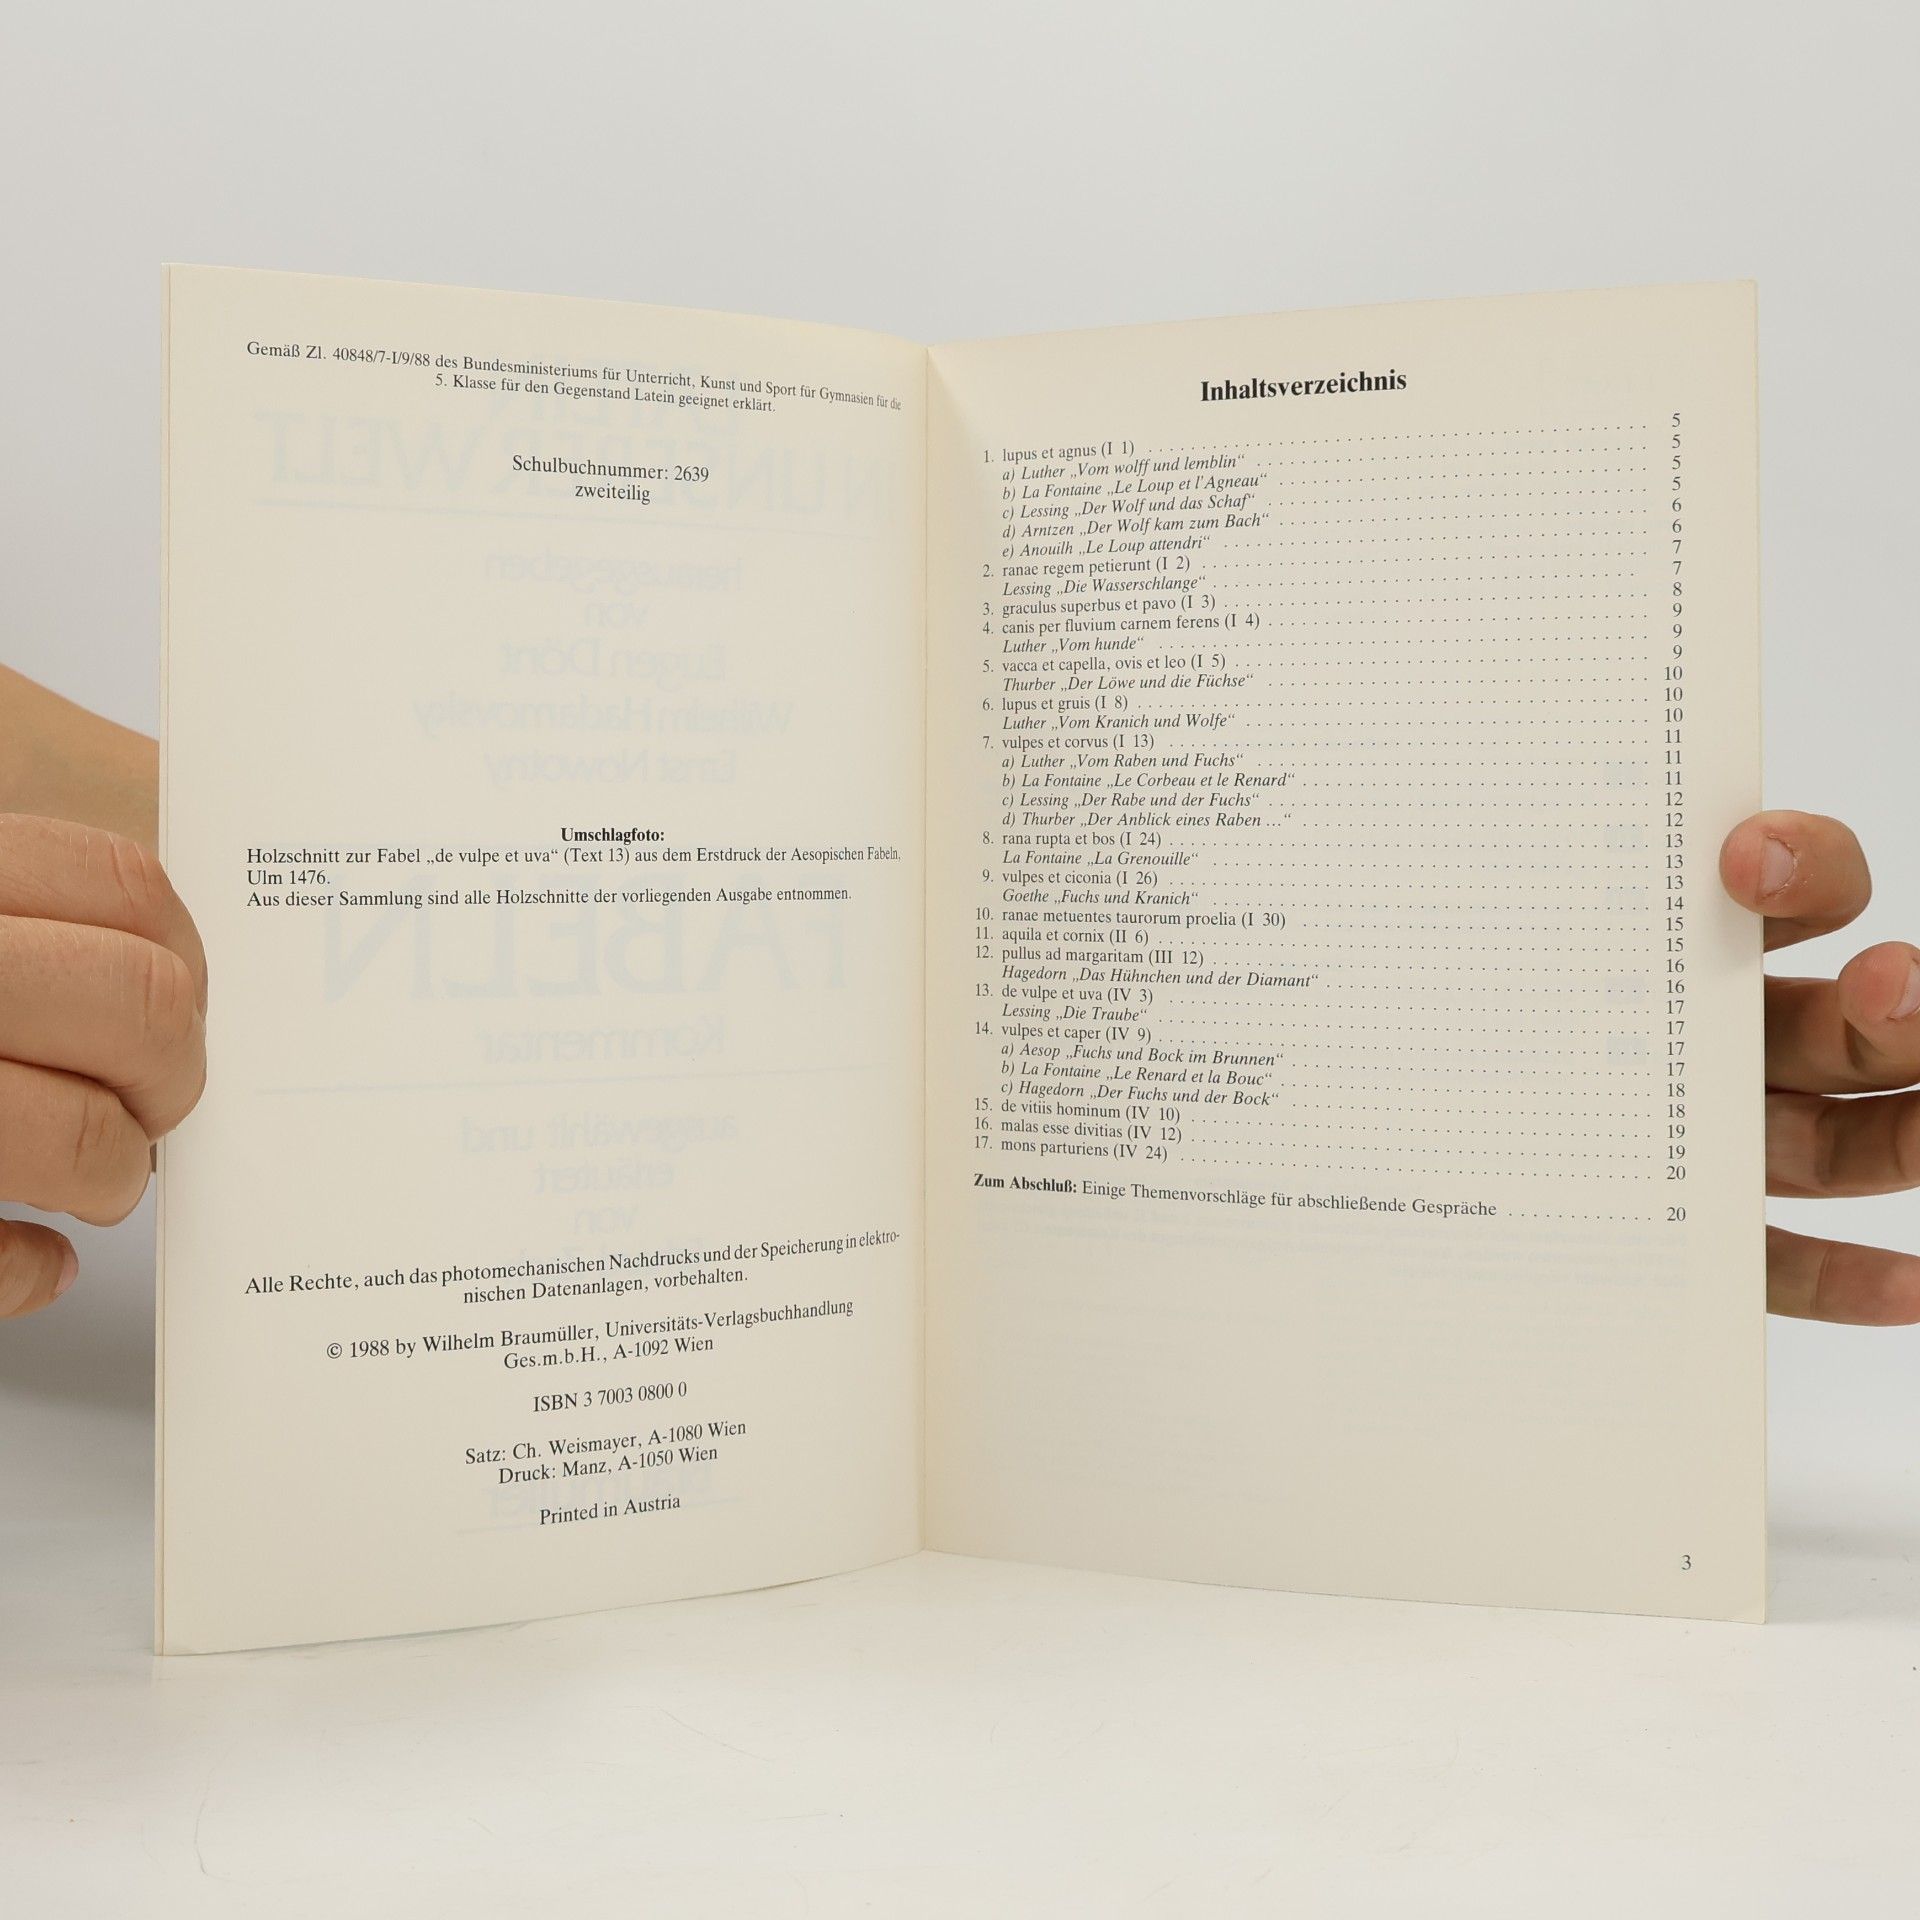 Gemäß Zl. 40848/7-I/9/88 des Bundesministeriums für Unterricht, Kunst und Sport für Gymnasien für die
5. Klasse für den Gegenstand Latein geeignet erklärt.
Schulbuchnummer: 2639
zweiteilig
Umschlagfoto:
Holzschnitt zur Fabel „de vulpe et uva“ (Text 13) aus dem Erstdruck der Aesopischen Fabeln,
Ulm 1476.
Aus dieser Sammlung sind alle Holzschnitte der vorliegenden Ausgabe entnommen.
Alle Rechte, auch das photomechanischen Nachdrucks und der Speicherung in elektro-
nischen Datenanlagen, vorbehalten.
© 1988 by Wilhelm Braumüller, Universitäts-Verlagsbuchhandlung
Ges.m.b.H., A-1092 Wien
ISBN 3 7003 0800 0
Satz: Ch. Weismayer, A-1080 Wien
Druck: Manz, A-1050 Wien
Printed in Austria
Inhaltsverzeichnis
1. lupus et agnus (I 1) 5
a) Luther „Vom wolff und lemblin“ 5
b) La Fontaine „Le Loup et l'Agneau“ 5
c) Lessing „Der Wolf und das Schaf“ 5
d) Arntzen „Der Wolf kam zum Bach“ 6
e) Anouilh „Le Loup attendri“ 6
2. ranae regem petierunt (I 2) 7
Lessing „Die Wasserschlange“ 7
3. graculus superbus et pavo (I 3) 8
4. canis per fluvium carnem ferens (I 4) 9
Luther „Vom hunde“ 9
5. vacca et capella, ovis et leo (I 5) 9
Thurber „Der Löwe und die Füchse“ 10
6. lupus et gruis (I 8) 10
Luther „Vom Kranich und Wolfe“ 10
7. vulpes et corvus (I 13) 11
a) Luther „Vom Raben und Fuchs“ 11
b) La Fontaine „Le Corbeau et le Renard“ 11
c) Lessing „Der Rabe und der Fuchs“ 12
d) Thurber „Der Anblick eines Raben ...“ 12
8. rana rupta et bos (I 24) 13
La Fontaine „La Grenouille“ 13
9. vulpes et ciconia (I 26) 13
Goethe „Fuchs und Kranich“ 14
10. ranae metuentes taurorum proelia (I 30) 15
11. aquila et cornix (II 6) 15
12. pullus ad margaritam (III 12) 16
Hagedorn „Das Hühnchen und der Diamant“ 16
13. de vulpe et uva (IV 3) 17
Lessing „Die Traube“ 17
14. vulpes et caper (IV 9) 17
a) Aesop „Fuchs und Bock im Brunnen“ 17
b) La Fontaine „Le Renard et la Bouc“ 18
c) Hagedorn „Der Fuchs und der Bock“ 18
15. de vitiis hominum (IV 10) 19
16. malas esse divitias (IV 12) 19
17. mons parturiens (IV 24) 20
Zum Abschluß: Einige Themenvorschläge für abschließende Gespräche 20
3